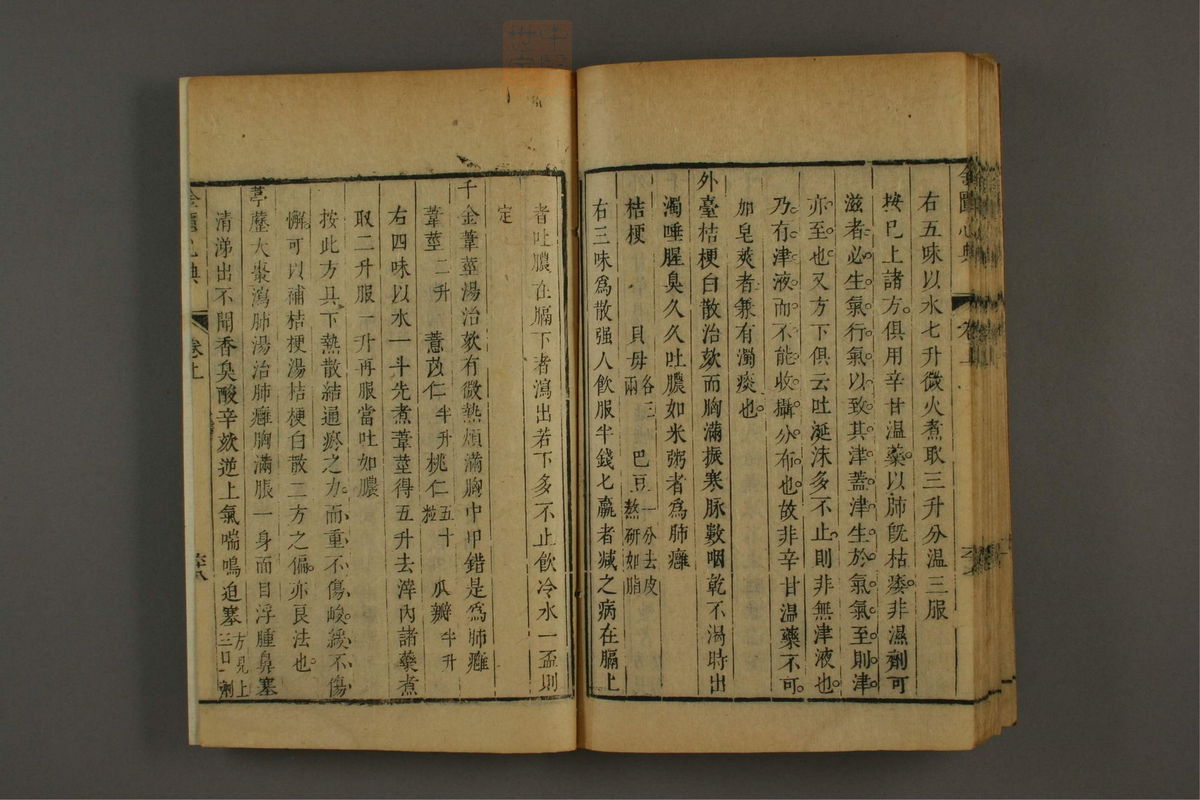 金匱心典 卷上
右五味以水七升微火煮取三升分溫三服
按巳上諸方俱用辛甘溫藥以肺旣枯痿非濕劑可
滋者必生氣行氣以致其津蓋津生於氣氣至則津
亦至也又方下俱云吐涎沫多不止則非無津液也
乃有津液而不能收攝分布也故非辛甘溫藥不可
加皂莢者兼有濁痰也
外臺桔梗白散治欬而胸滿振寒脉數咽乾不渴時出
濁唾腥臭久久吐膿如米粥者爲肺癰
桔梗 貝母各三兩 巴豆一分去皮熬研如脂
右三味爲散强人飮服半錢匕羸者減之病在膈上
者吐膿在膈下者瀉出若下多不止飮冷水一盃則
定
千金葦莖湯治欬有微熱煩滿胸中甲錯是爲肺癰
葦莖二升 薏苡仁半升 桃仁五十粒 瓜瓣半升
右四味以水一斗先煮葦莖得五升去滓內諸藥煮
取二升服一升再服當吐如膿
按此方具下熱散結通瘀之力而重不傷峻緩不傷
懈可以補桔梗湯桔梗白散二方之偏亦良法也
葶藶大棗瀉肺湯治肺癰胸滿脹一身面目浮腫鼻塞
清涕出不聞香臭酸辛欬逆上氣喘鳴迫塞方見上三日一劑
金匱心典 卷上